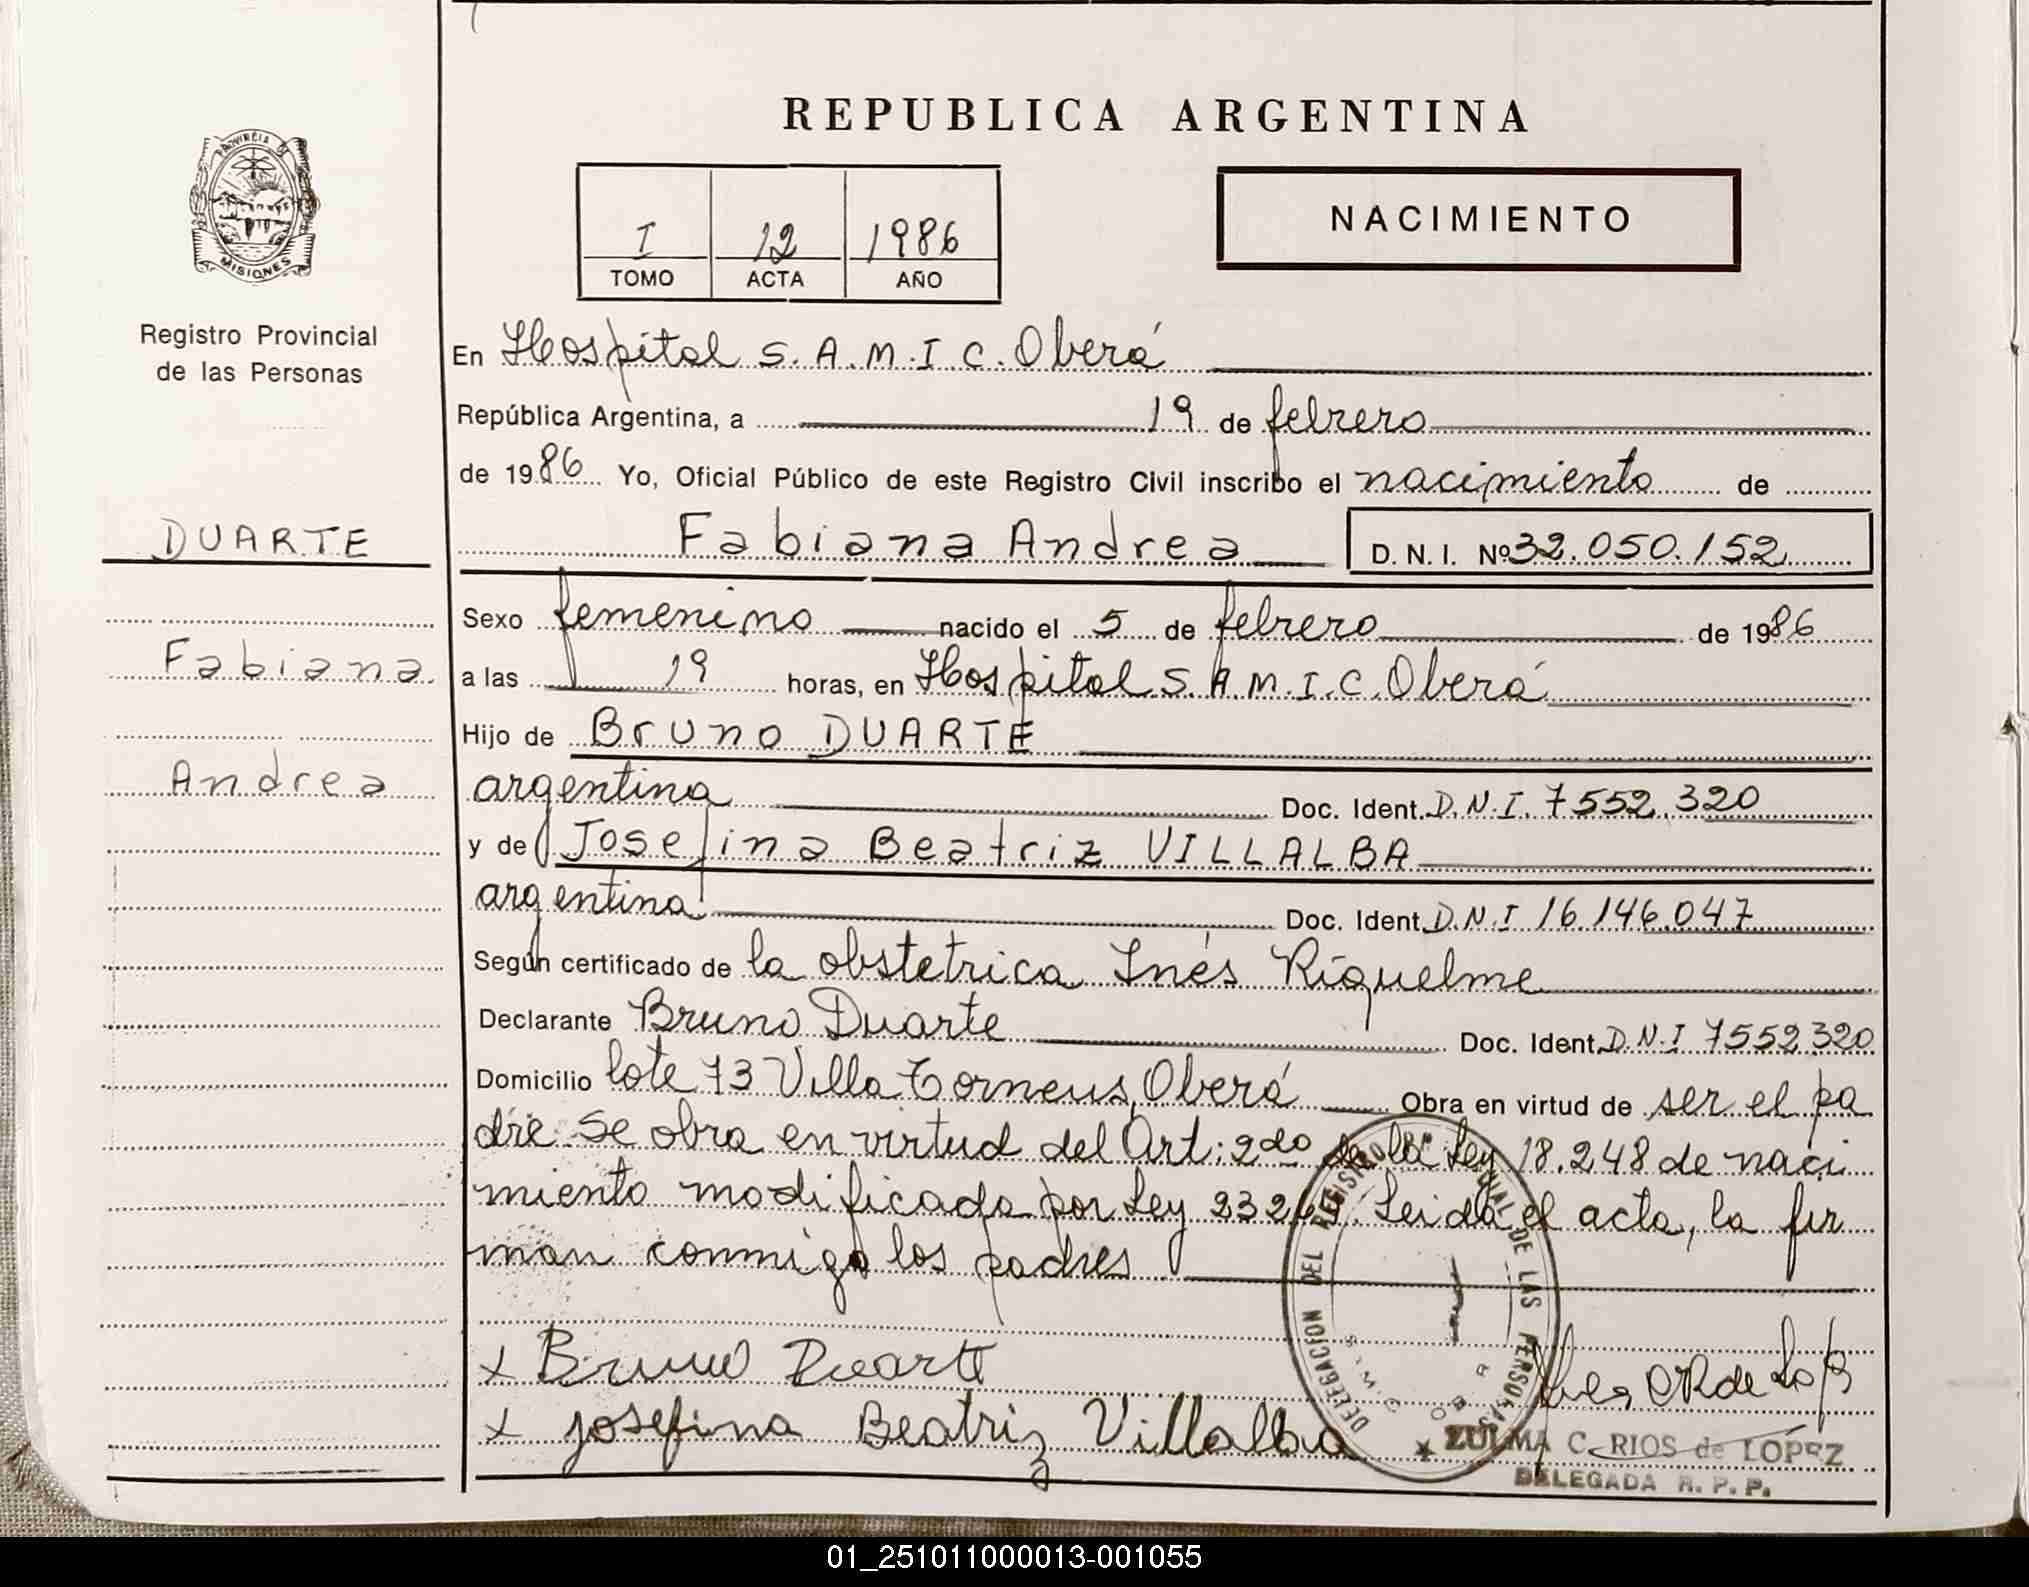 REPUBLICA ARGENTINA
PROVINCIA DE
MISIONES
Registro Provincial
de las Personas
NACIMIENTO
I 12 1986
TOMO ACTA AÑO
En Hospital S.A.M.I.C. Oberá
República Argentina, a 19 de febrero
de 1986 Yo, Oficial Público de este Registro Civil inscribo el nacimiento de
DUARTE
Fabiana Andrea D.N.I. Nº 32.050.152
Fabiana
Andrea
Sexo femenino nacido el 5 de febrero de 1986
a las 19 horas, en Hospital S.A.M.I.C. Oberá
Hijo de Bruno DUARTE
argentina Doc. Ident. D.N.I. 7552.320
y de Josefina Beatriz VILLALBA
argentina Doc. Ident. D.N.I 16.146.047
Según certificado de la obstetrica Inés Riquelme
Declarante Bruno Duarte Doc. Ident. D.N.I 7552320
Domicilio lote 73 Villa Torneus, Oberá Obra en virtud de ser el pa
dre se obra en virtud del Art: 2do de la Ley 18.248 de naci
miento modificada por Ley 2326. Leida el acta, la fir
man conmigo los padres
x Bruno Duarte
x Josefina Beatriz Villalba
DELEGACION DEL REGISTRO DE LAS PERSONAS
ZULMA C. RIOS de LÓPEZ
DELEGADA R.P.P.
01_251011000013-001055